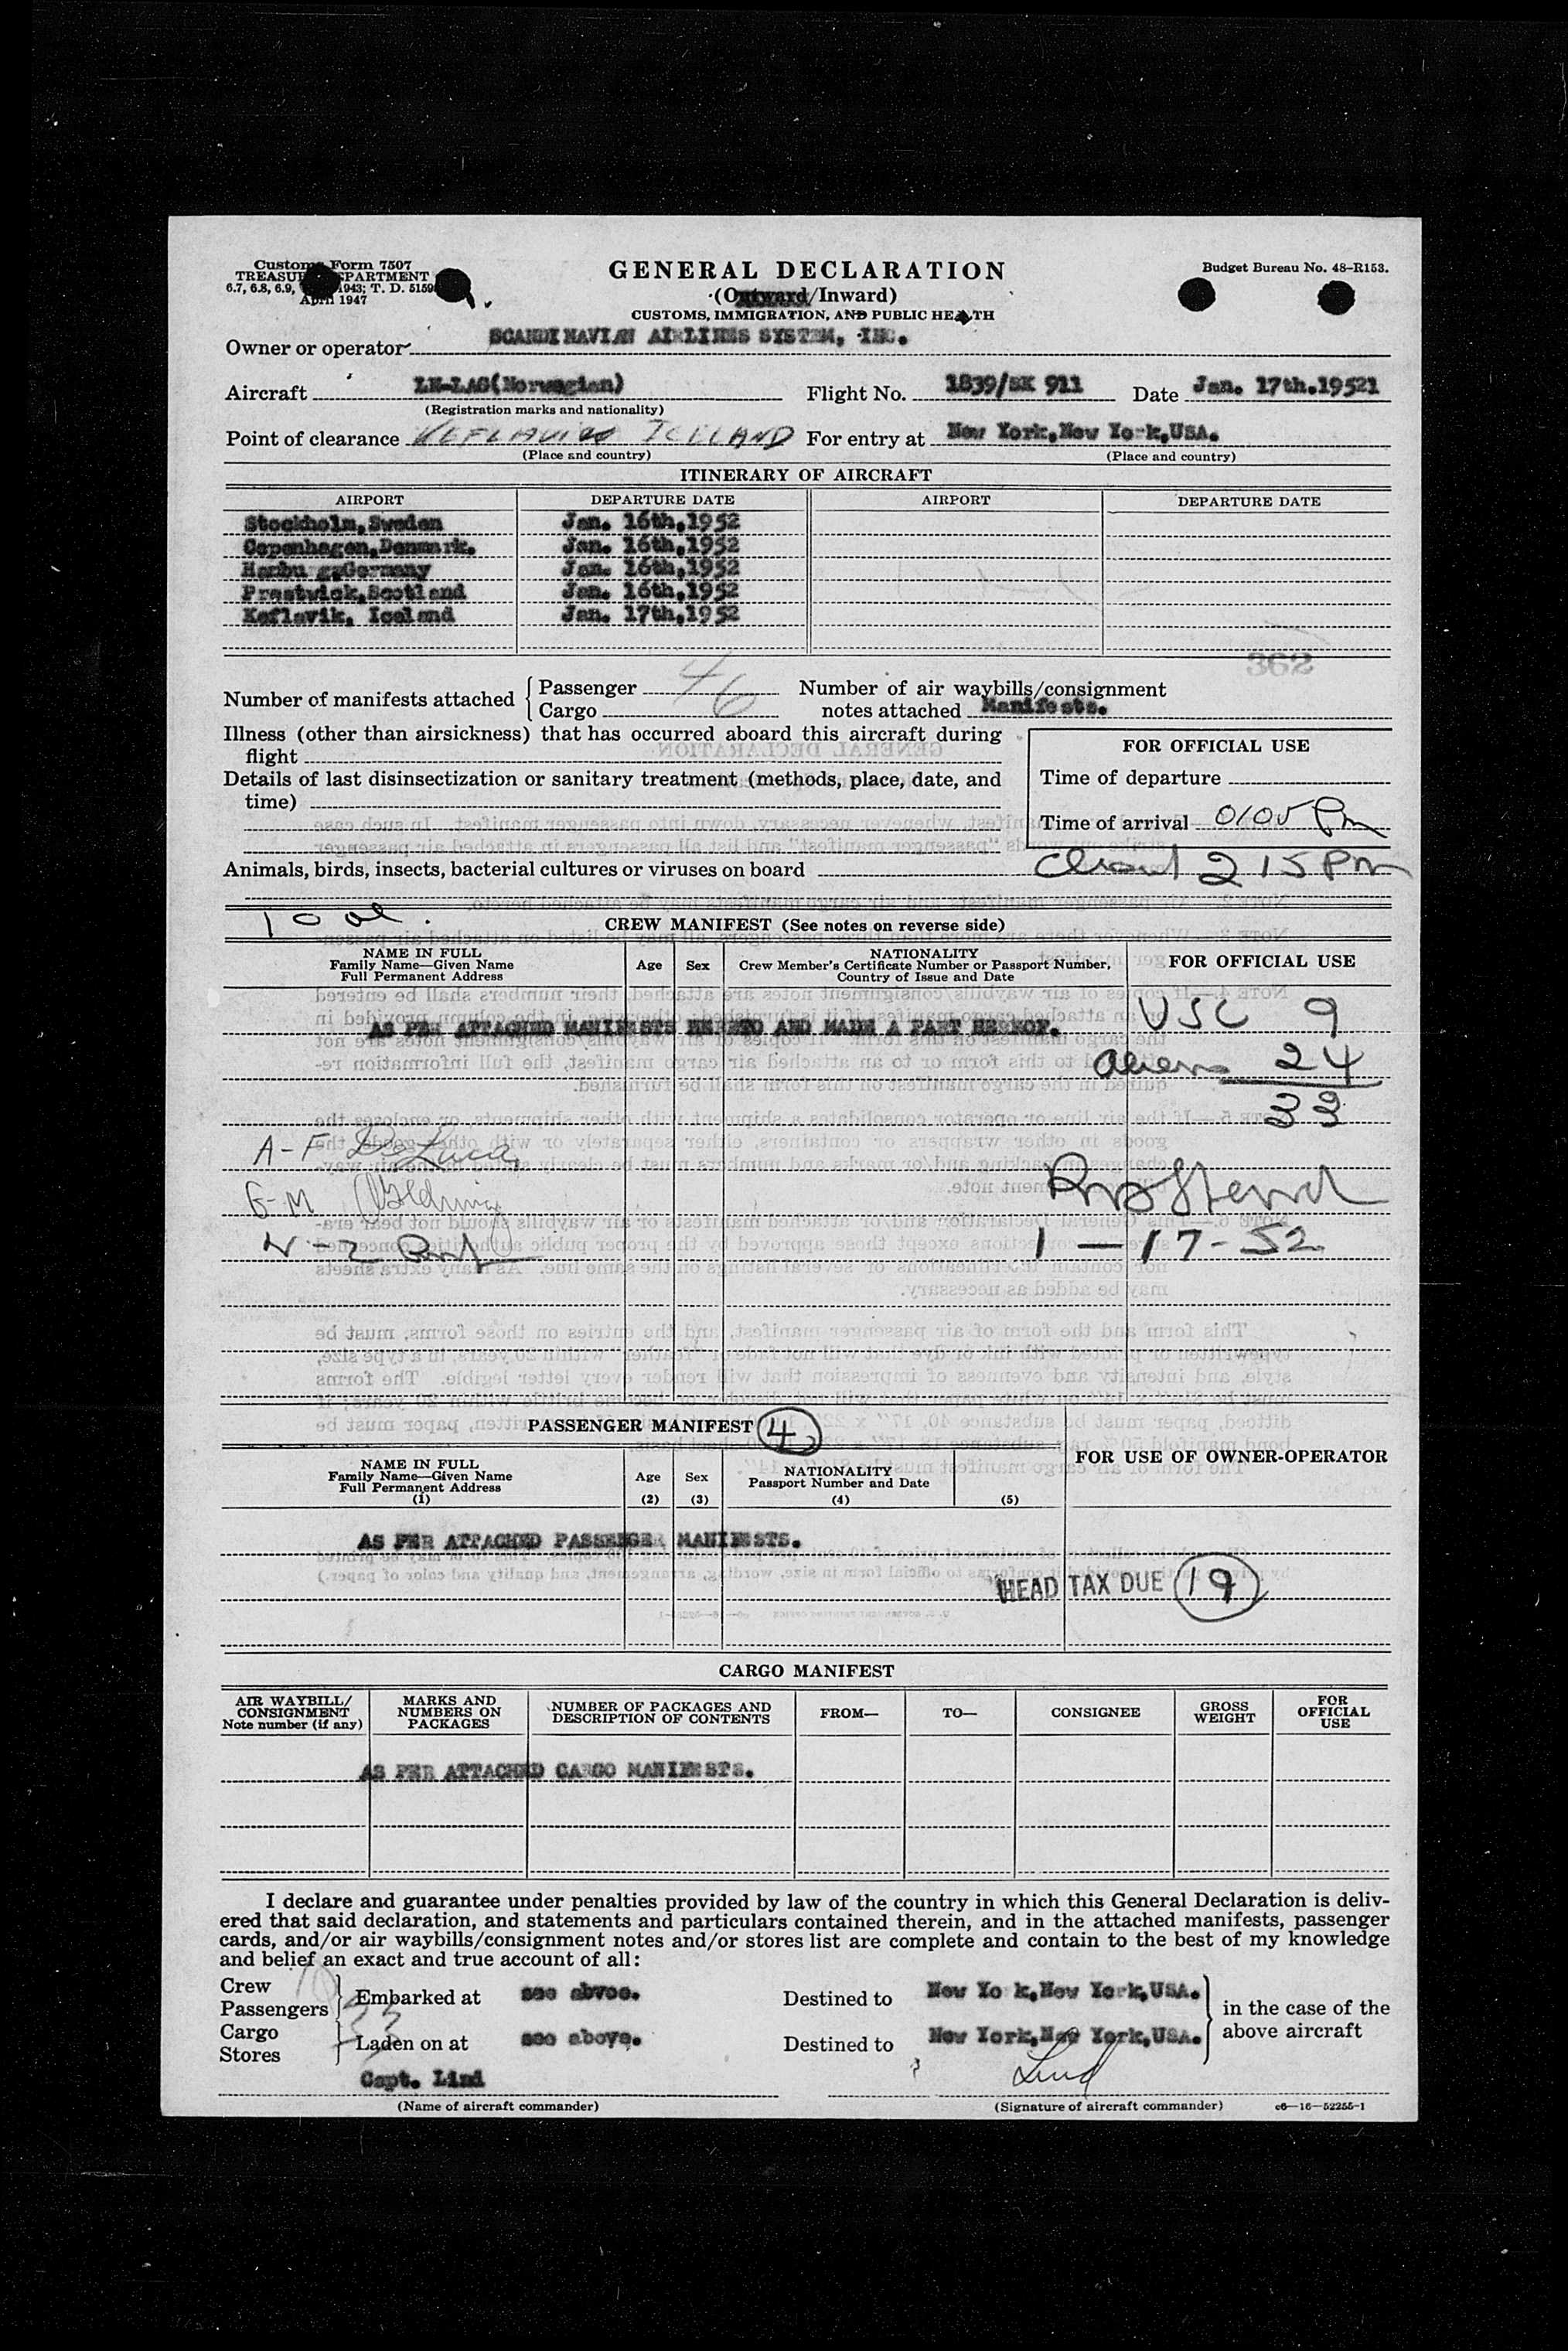 Customs Form 7507
TREASURY DEPARTMENT
6.7, 6.8, 6.9, 1943; T. D. 5159
April 1947
GENERAL DECLARATION
(Outward/Inward)
CUSTOMS, IMMIGRATION, AND PUBLIC HEALTH
Budget Bureau No. 48-R153.
Owner or operator SCANDINAVIAN AIRLINES SYSTEM, INC.
Aircraft LN-LAG(Norwegian) Flight No. 1839/SK 911 Date Jan. 17th.19521
(Registration marks and nationality)
Point of clearance KEFLAVIK ICELAND For entry at New York,New York,USA.
(Place and country) (Place and country)
ITINERARY OF AIRCRAFT
AIRPORT DEPARTURE DATE AIRPORT DEPARTURE DATE
Stockholm,Sweden Jan. 16th,1952
Copenhagen,Denmark. Jan. 16th,1952
Hambu g,Germany Jan. 16th,1952
Prestwick,Scotland Jan. 16th,1952
Keflavik, Iceland Jan. 17th,1952
362
Number of manifests attached { Passenger 4
Cargo 6
Number of air waybills/consignment
notes attached Manifests.
Illness (other than airsickness) that has occurred aboard this aircraft during
flight
Details of last disinsectization or sanitary treatment (methods, place, date, and
time)
FOR OFFICIAL USE
Time of departure
Time of arrival 0105 Pm
Animals, birds, insects, bacterial cultures or viruses on board
215 Pm
CREW MANIFEST (See notes on reverse side)
NAME IN FULL
Family Name—Given Name
Full Permanent Address
Age Sex
NATIONALITY
Crew Member's Certificate Number or Passport Number,
Country of Issue and Date
FOR OFFICIAL USE
AS PER ATTACHED MANIFESTS HERETO AND MADE A PART HEREOF.
USC 9
Aliens 24
33
A-F DeLuca
G-M
N-Z
1-17-52
PASSENGER MANIFEST 4
NAME IN FULL
Family Name—Given Name
Full Permanent Address
(1)
Age
(2)
Sex
(3)
NATIONALITY
Passport Number and Date
(4) (5)
FOR USE OF OWNER-OPERATOR
AS PER ATTACHED PASSENGER MANIFESTS.
HEAD TAX DUE 19
CARGO MANIFEST
AIR WAYBILL/
CONSIGNMENT
Note number (if any)
MARKS AND
NUMBERS ON
PACKAGES
NUMBER OF PACKAGES AND
DESCRIPTION OF CONTENTS
FROM— TO— CONSIGNEE
GROSS
WEIGHT
FOR
OFFICIAL
USE
AS PER ATTACHED CARGO MANIFESTS.
I declare and guarantee under penalties provided by law of the country in which this General Declaration is deliv-
ered that said declaration, and statements and particulars contained therein, and in the attached manifests, passenger
cards, and/or air waybills/consignment notes and/or stores list are complete and contain to the best of my knowledge
and belief an exact and true account of all:
Crew 10
Passengers 33
Embarked at see abvoe. Destined to New Yo k,New York,USA.
Cargo
Stores
Laden on at see above. Destined to New York,New York,USA.
in the case of the
above aircraft
Capt. Lind
Lind
(Name of aircraft commander) (Signature of aircraft commander) c6—16—52255-1